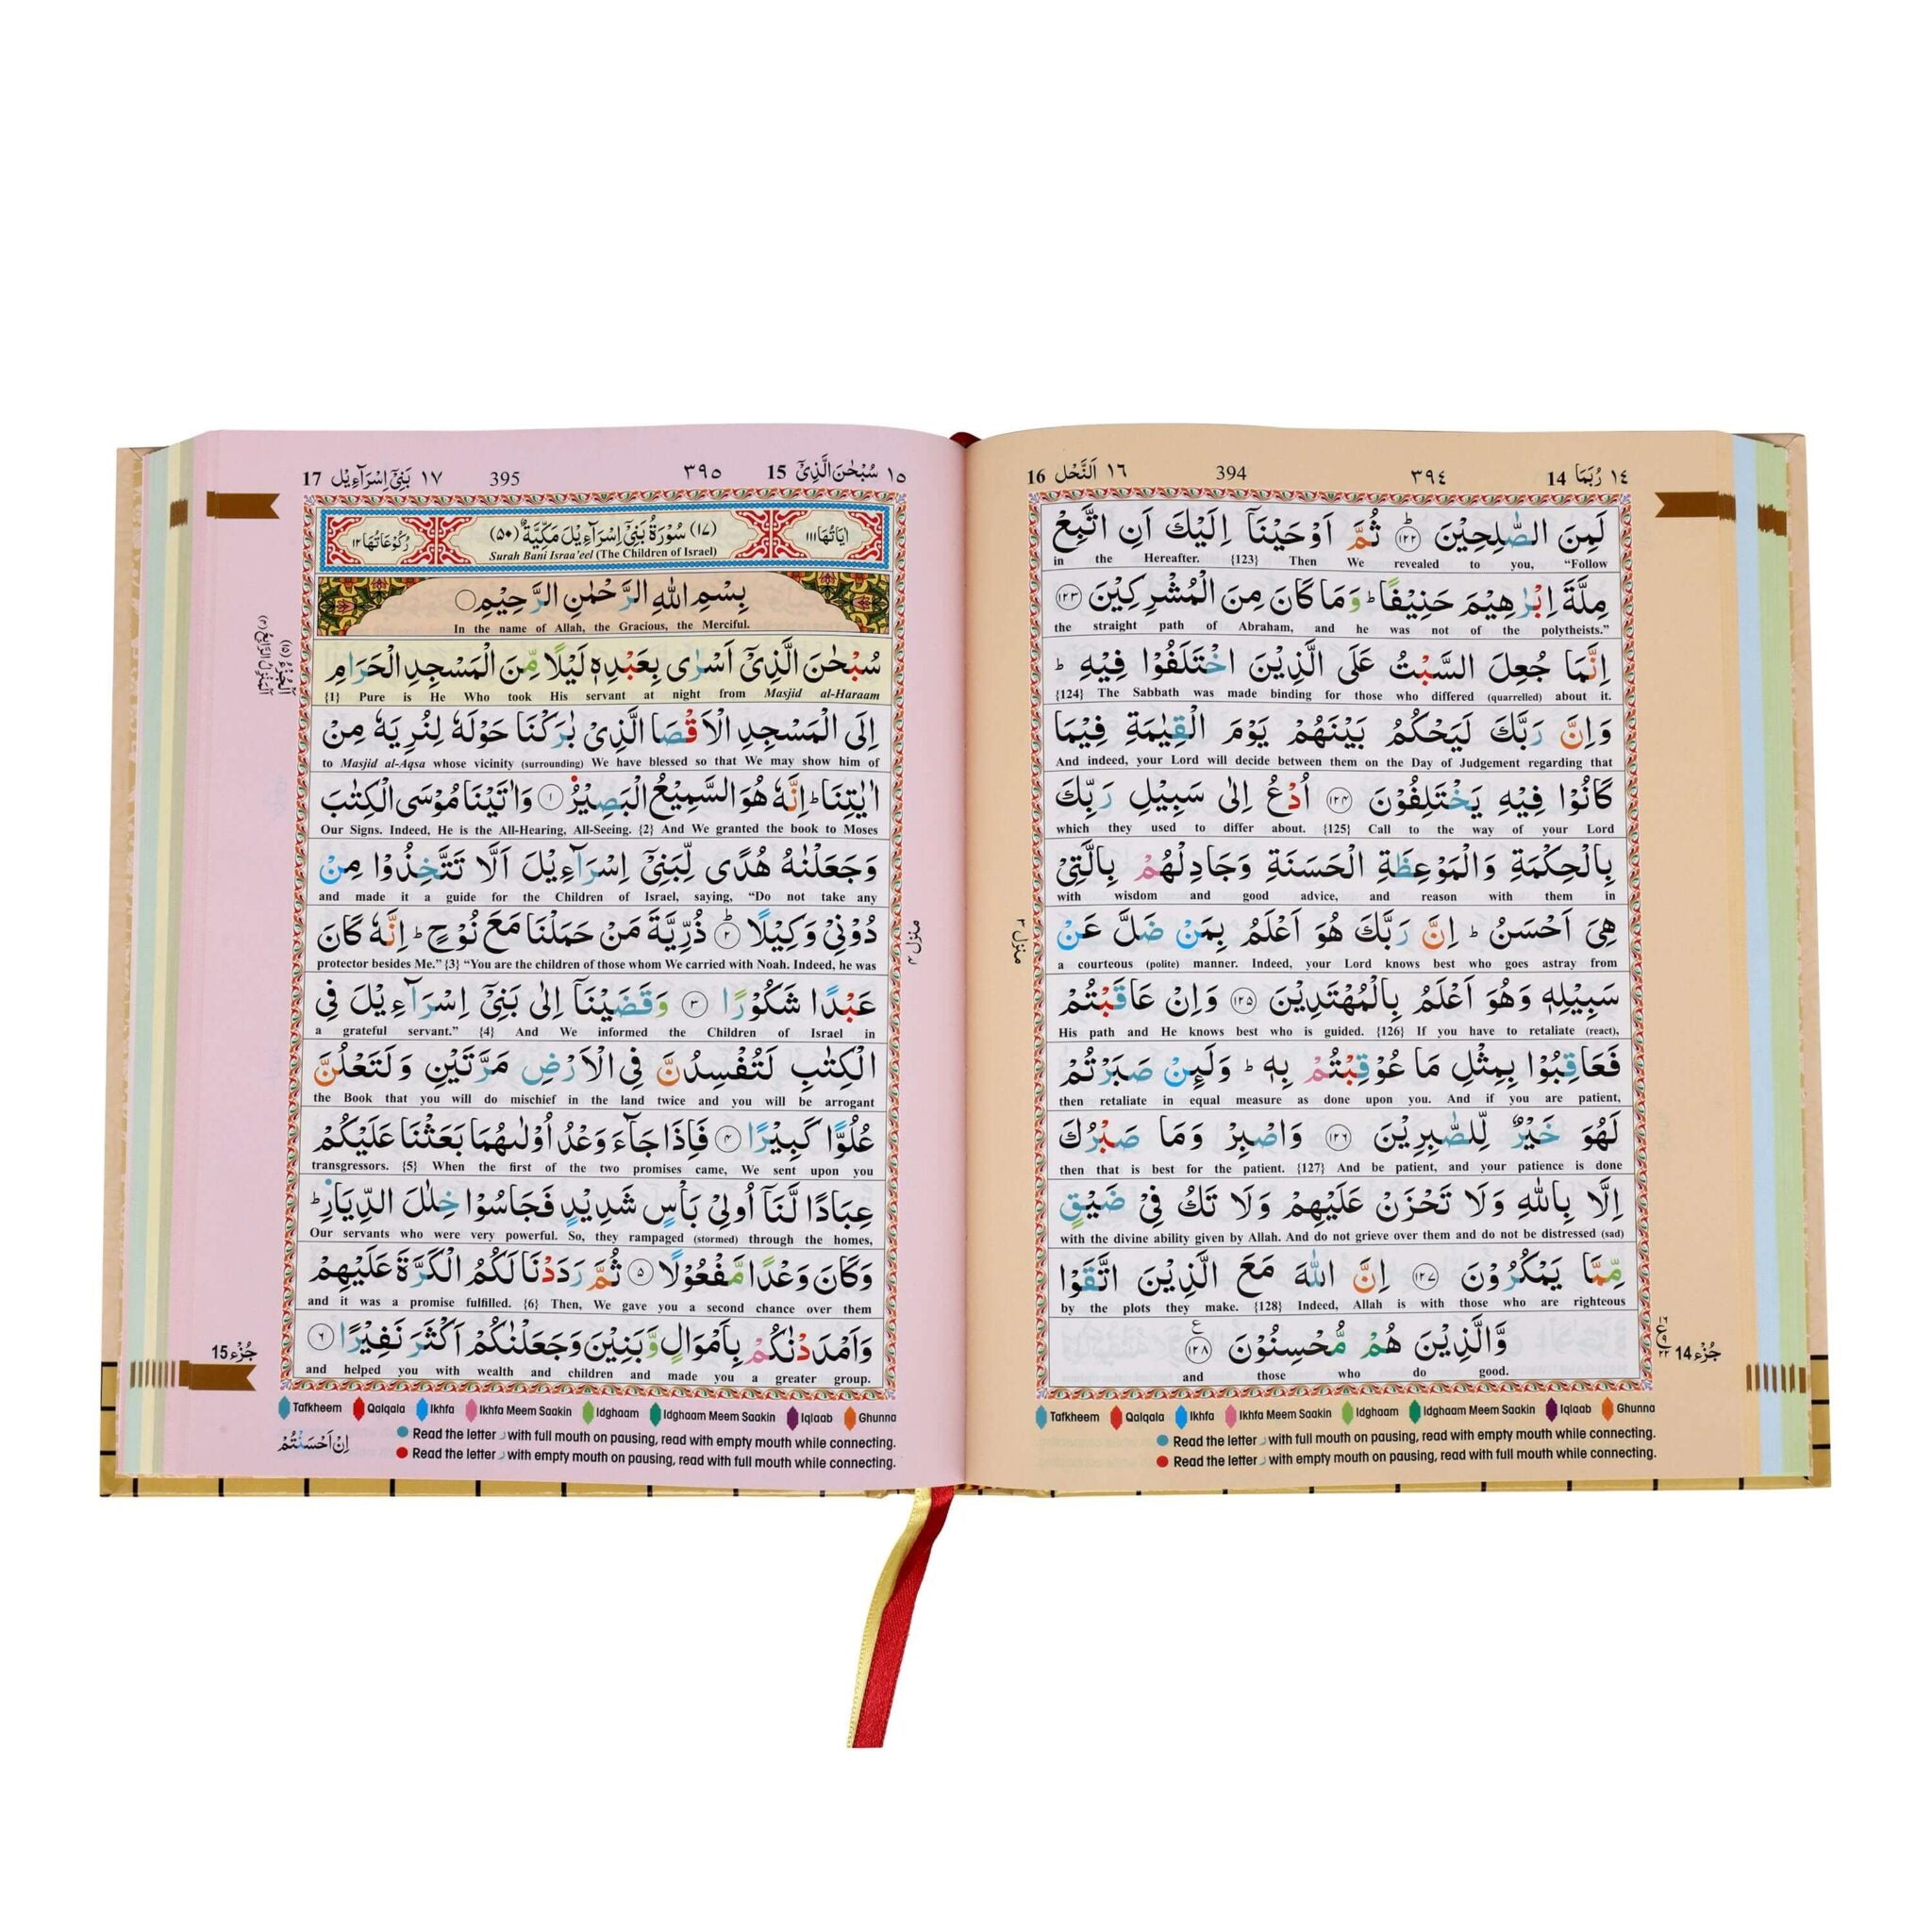 ١٤ رُبَمَا 14
٣٩٤
394
١٦ اَلنَّحْل 16
لَمِنَ الصّٰلِحِيْنَ ﴿١٢٢﴾ ثُمَّ اَوْحَيْنَآ اِلَيْكَ اَنِ اتَّبِعْ
in the Hereafter. {123} Then We revealed to you, “Follow
مِلَّةَ اِبْرٰهِيْمَ حَنِيْفًا ؕ وَمَا كَانَ مِنَ الْمُشْرِكِيْنَ ﴿١٢٣﴾
the straight path of Abraham, and he was not of the polytheists.”
اِنَّمَا جُعِلَ السَّبْتُ عَلَى الَّذِيْنَ اخْتَلَفُوْا فِيْهِ ؕ
{124} The Sabbath was made binding for those who differed (quarrelled) about it.
وَاِنَّ رَبَّكَ لَيَحْكُمُ بَيْنَهُمْ يَوْمَ الْقِيٰمَةِ فِيْمَا
And indeed, your Lord will decide between them on the Day of Judgement regarding that
كَانُوْا فِيْهِ يَخْتَلِفُوْنَ ﴿١٢٤﴾ اُدْعُ اِلٰى سَبِيْلِ رَبِّكَ
which they used to differ about. {125} Call to the way of your Lord
بِالْحِكْمَةِ وَالْمَوْعِظَةِ الْحَسَنَةِ وَجَادِلْهُمْ بِالَّتِيْ
with wisdom and good advice, and reason with them in
هِيَ اَحْسَنُ ؕ اِنَّ رَبَّكَ هُوَ اَعْلَمُ بِمَنْ ضَلَّ عَنْ
a courteous (polite) manner. Indeed, your Lord knows best who goes astray from
سَبِيْلِهٖ وَهُوَ اَعْلَمُ بِالْمُهْتَدِيْنَ ﴿١٢٥﴾ وَاِنْ عَاقَبْتُمْ
His path and He knows best who is guided. {126} If you have to retaliate (react),
فَعَاقِبُوْا بِمِثْلِ مَا عُوْقِبْتُمْ بِهٖ ؕ وَلَئِنْ صَبَرْتُمْ
then retaliate in equal measure as done upon you. And if you are patient,
لَهُوَ خَيْرٌ لِّلصّٰبِرِيْنَ ﴿١٢٦﴾ وَاصْبِرْ وَمَا صَبْرُكَ
then that is best for the patient. {127} And be patient, and your patience is done
اِلَّا بِاللّٰهِ وَلَا تَحْزَنْ عَلَيْهِمْ وَلَا تَكُ فِيْ ضَيْقٍ
with the divine ability given by Allah. And do not grieve over them and do not be distressed (sad)
مِّمَّا يَمْكُرُوْنَ ﴿١٢٧﴾ اِنَّ اللّٰهَ مَعَ الَّذِيْنَ اتَّقَوْا
by the plots they make. {128} Indeed, Allah is with those who are righteous
وَّالَّذِيْنَ هُمْ مُّحْسِنُوْنَ ﴿١٢٨﴾
and those who do good.
منزل ٣
جُزْء 14
Tafkheem Qalqala Ikhfa Ikhfa Meem Saakin Idghaam Idghaam Meem Saakin Iqlaab Ghunna
Read the letter ر with full mouth on pausing, read with empty mouth while connecting.
Read the letter ر with empty mouth on pausing, read with full mouth while connecting.
١٥ سُبْحٰنَ الَّذِيْٓ 15
٣٩٥
395
١٧ بَنِيْٓ اِسْرَآءِيْل 17
اٰيَاتُهَا ١١١
(١٧) سُوْرَةُ بَنِيْٓ اِسْرَآءِيْلَ مَكِّيَّةٌ (٥٠)
رُكُوْعَاتُهَا ١٢
Surah Bani Israa'eel (The Children of Israel)
بِسْمِ اللّٰهِ الرَّحْمٰنِ الرَّحِيْمِ
In the name of Allah, the Gracious, the Merciful.
سُبْحٰنَ الَّذِيْٓ اَسْرٰى بِعَبْدِهٖ لَيْلًا مِّنَ الْمَسْجِدِ الْحَرَامِ
{1} Pure is He Who took His servant at night from Masjid al-Haraam
اِلَى الْمَسْجِدِ الْاَقْصَا الَّذِيْ بٰرَكْنَا حَوْلَهٗ لِنُرِيَهٗ مِنْ
to Masjid al-Aqsa whose vicinity (surrounding) We have blessed so that We may show him of
اٰيٰتِنَا ؕ اِنَّهٗ هُوَ السَّمِيْعُ الْبَصِيْرُ ﴿١﴾ وَاٰتَيْنَا مُوْسَى الْكِتٰبَ
Our Signs. Indeed, He is the All-Hearing, All-Seeing. {2} And We granted the book to Moses
وَجَعَلْنٰهُ هُدًى لِّبَنِيْٓ اِسْرَآءِيْلَ اَلَّا تَتَّخِذُوْا مِنْ
and made it a guide for the Children of Israel, saying, “Do not take any
دُوْنِيْ وَكِيْلًا ﴿٢﴾ ذُرِّيَّةَ مَنْ حَمَلْنَا مَعَ نُوْحٍ ؕ اِنَّهٗ كَانَ
protector besides Me.” {3} “You are the children of those whom We carried with Noah. Indeed, he was
عَبْدًا شَكُوْرًا ﴿٣﴾ وَقَضَيْنَآ اِلٰى بَنِيْٓ اِسْرَآءِيْلَ فِي
a grateful servant.” {4} And We informed the Children of Israel in
الْكِتٰبِ لَتُفْسِدُنَّ فِي الْاَرْضِ مَرَّتَيْنِ وَلَتَعْلُنَّ
the Book that you will do mischief in the land twice and you will be arrogant
عُلُوًّا كَبِيْرًا ﴿٤﴾ فَاِذَا جَآءَ وَعْدُ اُوْلٰىهُمَا بَعَثْنَا عَلَيْكُمْ
transgressors. {5} When the first of the two promises came, We sent upon you
عِبَادًا لَّنَآ اُولِيْ بَاْسٍ شَدِيْدٍ فَجَاسُوْا خِلٰلَ الدِّيَارِ ؕ
Our servants who were very powerful. So, they rampaged (stormed) through the homes,
وَكَانَ وَعْدًا مَّفْعُوْلًا ﴿٥﴾ ثُمَّ رَدَدْنَا لَكُمُ الْكَرَّةَ عَلَيْهِمْ
and it was a promise fulfilled. {6} Then, We gave you a second chance over them
وَاَمْدَدْنٰكُمْ بِاَمْوَالٍ وَّبَنِيْنَ وَجَعَلْنٰكُمْ اَكْثَرَ نَفِيْرًا ﴿٦﴾
and helped you with wealth and children and made you a greater group.
اَلْجُزْءُ (١٥)
اَلْمَنْزِلُ الرَّابِعُ (٤)
منزل ٤
جُزْء 15
Tafkheem Qalqala Ikhfa Ikhfa Meem Saakin Idghaam Idghaam Meem Saakin Iqlaab Ghunna
Read the letter ر with full mouth on pausing, read with empty mouth while connecting.
Read the letter ر with empty mouth on pausing, read with full mouth while connecting.
اِنْ اَحْسَنْتُمْ